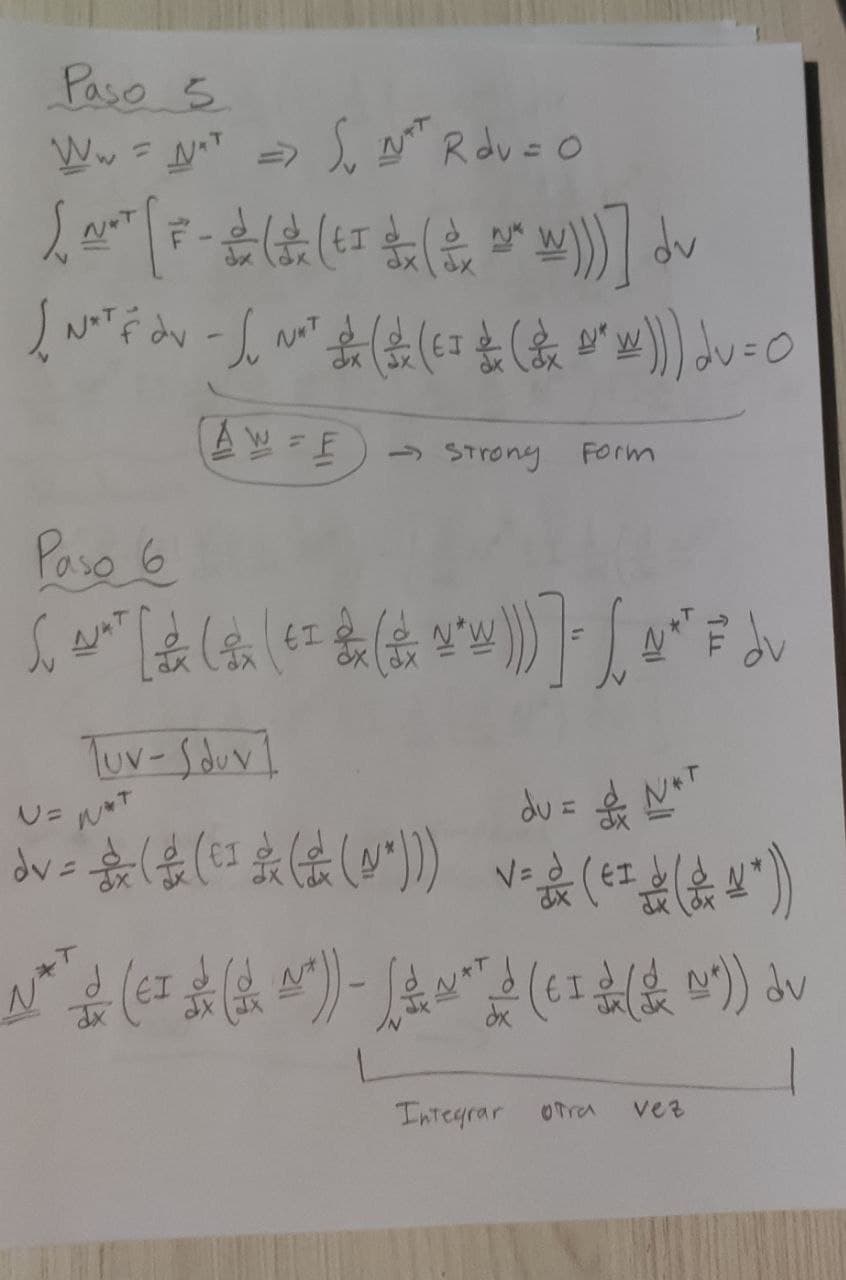 Paso 5
W_w = N*ᵀ ⇒ ∫_v N*ᵀ R dv = 0
∫_v N*ᵀ [F⃗ - d/dx(d/dx(EI d/dx(d/dx N* W)))] dv
∫_v N*ᵀ F⃗ dv - ∫_v N*ᵀ d/dx(d/dx(EI d/dx(d/dx N* W))) dv = 0
A W = F → Strong Form
Paso 6
∫_v N*ᵀ [d/dx(d/dx(EI d/dx(d/dx N* W)))] = ∫_v N*ᵀ F⃗ dv
uv - ∫duv
U = N*ᵀ du = d/dx N*ᵀ
dv = d/dx(d/dx(EI d/dx(d/dx(N*))) V = d/dx(EI d/dx(d/dx N*))
N*ᵀ d/dx(EI d/dx(d/dx N*)) - ∫_N d/dx N*ᵀ d/dx(EI d/dx(d/dx N*)) dv
Integrar otra vez